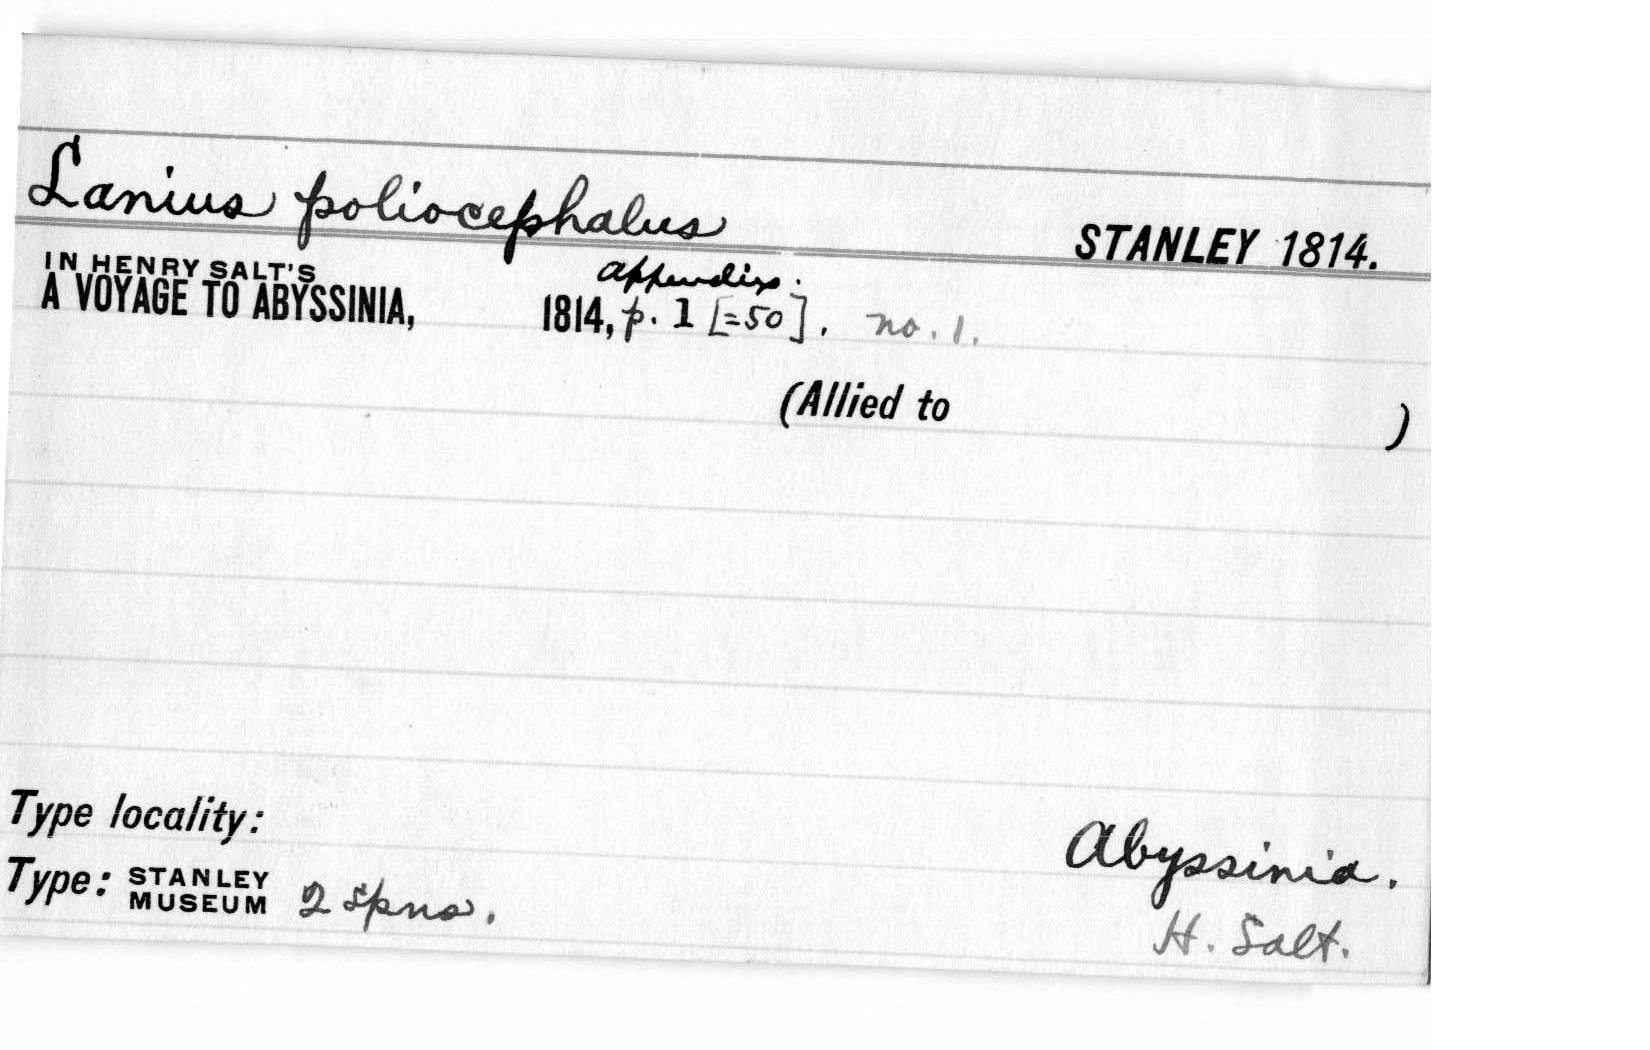 Lanius poliocephalus
STANLEY 1814.
IN HENRY SALT'S
A VOYAGE TO ABYSSINIA, 1814, appendix. p. 1 [=50]. no. 1.
(Allied to )
Type locality: Abyssinia.
Type: STANLEY MUSEUM 2 spns.
H. Salt.